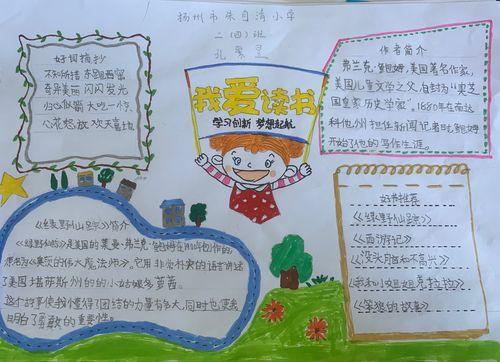 扬州市朱自清小学
二（四）班
孔
好词摘抄
不知所措 东跑西窜
奇异美丽 闪闪发光
归心似箭 大吃一惊
心花怒放 欢天喜地
我爱读书
学习创新 梦想起航
作者简介
弗兰克·鲍姆，美国著名作家，
美国儿童文学之父，自封为"奥芝
国皇家历史学家"。1880年在南达
科他州担任新闻记者时，鲍姆
开始了他的写作生涯。
《绿野仙踪》简介
《绿野仙踪》是美国的莱曼·弗兰克·鲍姆在1900年创作的，
原名为《奥茨的伟大魔法师》。它用非常朴素的语言讲述
了美国堪萨斯州的的小姑娘多萝茜。
这个故事使我懂得了团结的力量有多大，同时也
明白了勇敢的重要性。
好书推荐
《绿野仙踪》
《西游记》
《没头脑和不高兴》
《我和小姐姐克拉拉》
《笨狼的故事》